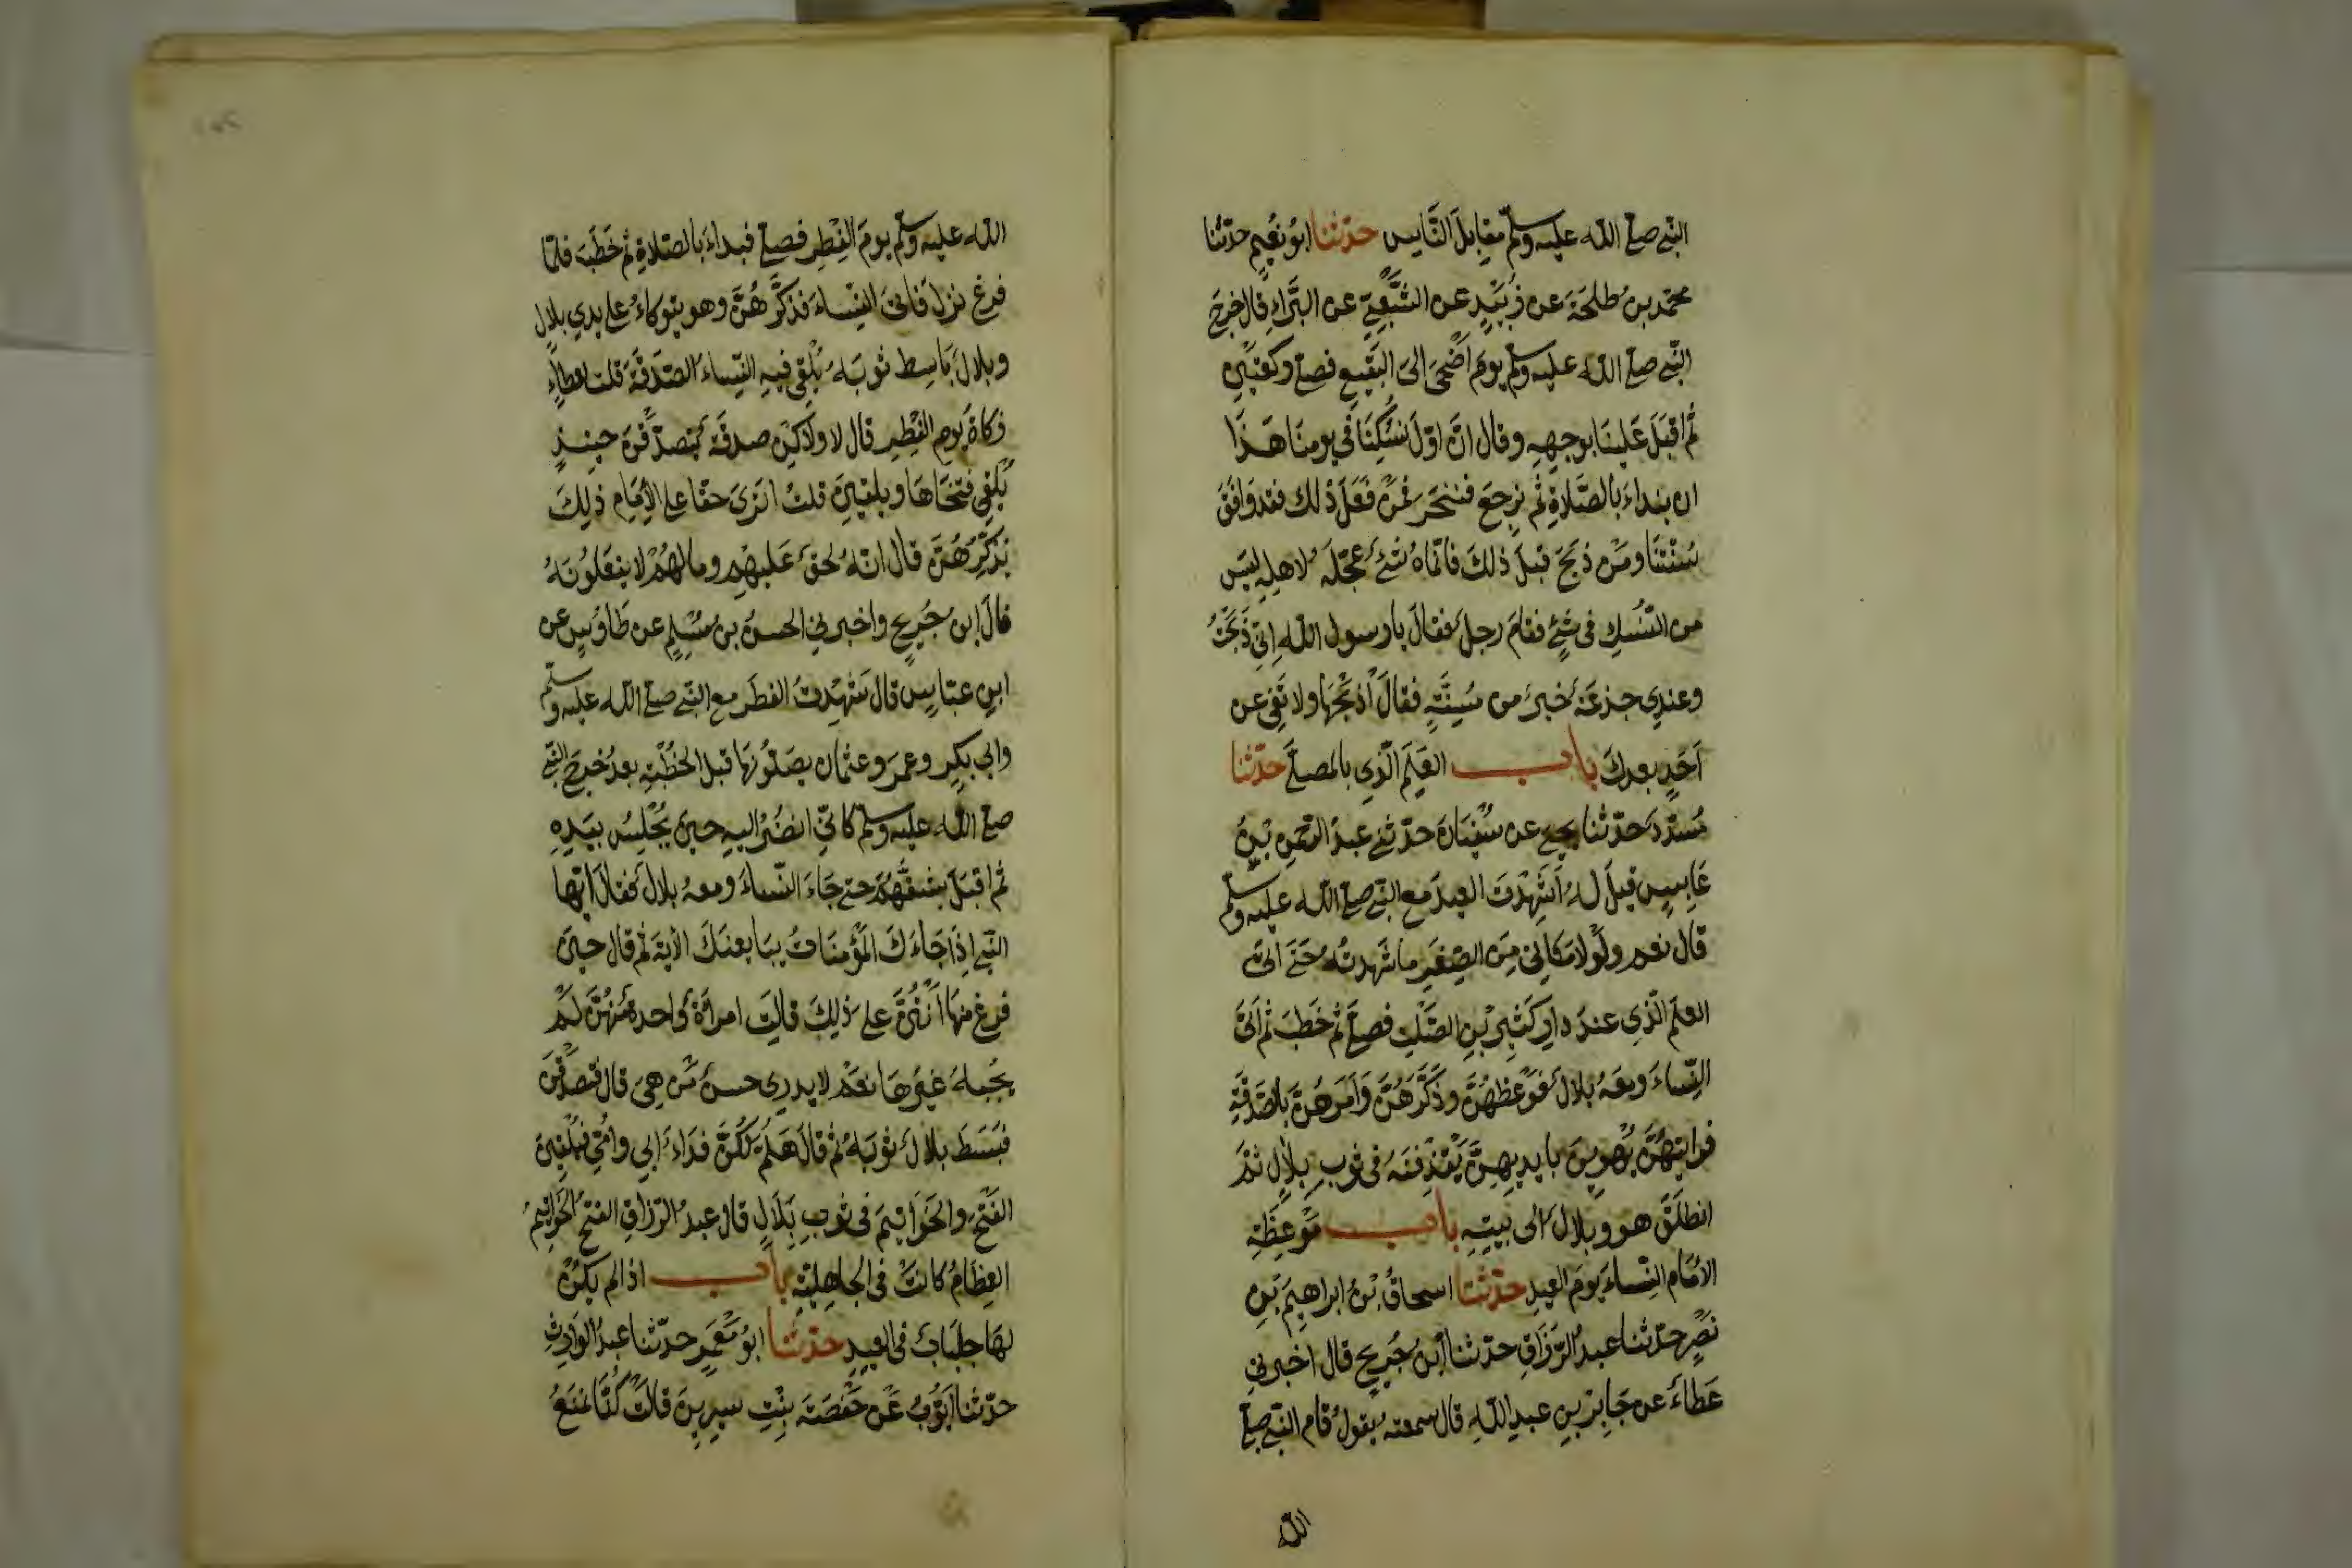 النبي صلى الله عليه وسلم مقابل الناس حدثنا ابو نعيم حدثنا
محمد بن طلحة عن زبيد عن الشعبي عن البراء قال خرج
النبي صلى الله عليه وسلم يوم اضحى الى البقيع فصلى ركعتين
ثم اقبل علينا بوجهه وقال ان اول نسكنا في يومنا هذا
ان نبداء بالصلاة ثم نرجع فننحر فمن فعل ذلك فقد وافق
سنتنا ومن ذبح قبل ذلك فانما شئ عجله لاهله ليس
من النسك في شئ فقام رجل فقال يا رسول الله اني ذبحت
وعندي جذعة خير من مسنة فقال اذبحها ولا تفي عن
احد بعدك باب العلم الذي بالمصلى حدثنا
مسدد حدثنا يحيى عن سفيان حدثني عبد الرحمن بن
عابس قيل له اشهدت العيد مع النبي صلى الله عليه وسلم
قال نعم ولولا مكاني من الصغر ما شهدته حتى اتى
العلم الذي عند دار كثير بن الصلت فصلى ثم خطب ثم اتى
النساء ومعه بلال فوعظهن وذكرهن وامرهن بالصدقة
فرايتهن يهوين بايديهن يقذفنه في ثوب بلال ثم
انطلق هو وبلال الى بيته باب موعظة
الامام النساء يوم العيد حدثنا اسحاق بن ابراهيم بن
نصر حدثنا عبد الرزاق حدثنا ابن جريج قال اخبرني
عطاء عن جابر بن عبد الله قال سمعته يقول قام النبي صلى
الله
الله عليه وسلم يوم الفطر فصلى فبداء بالصلاة ثم خطب فلما
فرغ نزل فاتى النساء فذكرهن وهو يتوكاء على يدي بلال
وبلال باسط ثوبه يلقي فيه النساء الصدقة قلت لعطاء
زكاة يوم الفطر قال لا ولكن صدقة يتصدقن حينئذ
تلقي فتخاها ويلقين قلت اترى حقا على الامام ذلك
يذكرهن قال انه لحق عليهم وما لهم لا يفعلونه
قال ابن جريج واخبرني الحسن بن مسلم عن طاوس عن
ابن عباس قال شهدت الفطر مع النبي صلى الله عليه وسلم
وابي بكر وعمر وعثمان يصلونها قبل الخطبة بعد خرج النبي
صلى الله عليه وسلم كاني انضر اليه حين يجلس بيده
ثم اقبل يشقهم حتى جاء النساء ومعه بلال فقال ايها
النبي اذا جاءك المؤمنات يبايعنك الاية ثم قال حين
فرغ منها انتن على ذلك قالت امراة واحدة منهن لم
يجبه غيرها نعم لا يدري حسن من هي قال فتصدقن
فبسط بلال ثوبه ثم قال هلم لكن فداء ابي وامي فيلقين
الفتخ والخواتيم في ثوب بلال قال عبد الرزاق الفتخ الخواتيم
العظام كانت في الجاهلية باب اذا لم يكن
لها جلباب في العيد حدثنا ابو معمر حدثنا عبد الوارث
حدثنا ايوب عن حفصة بنت سيرين قالت كنا نمنع